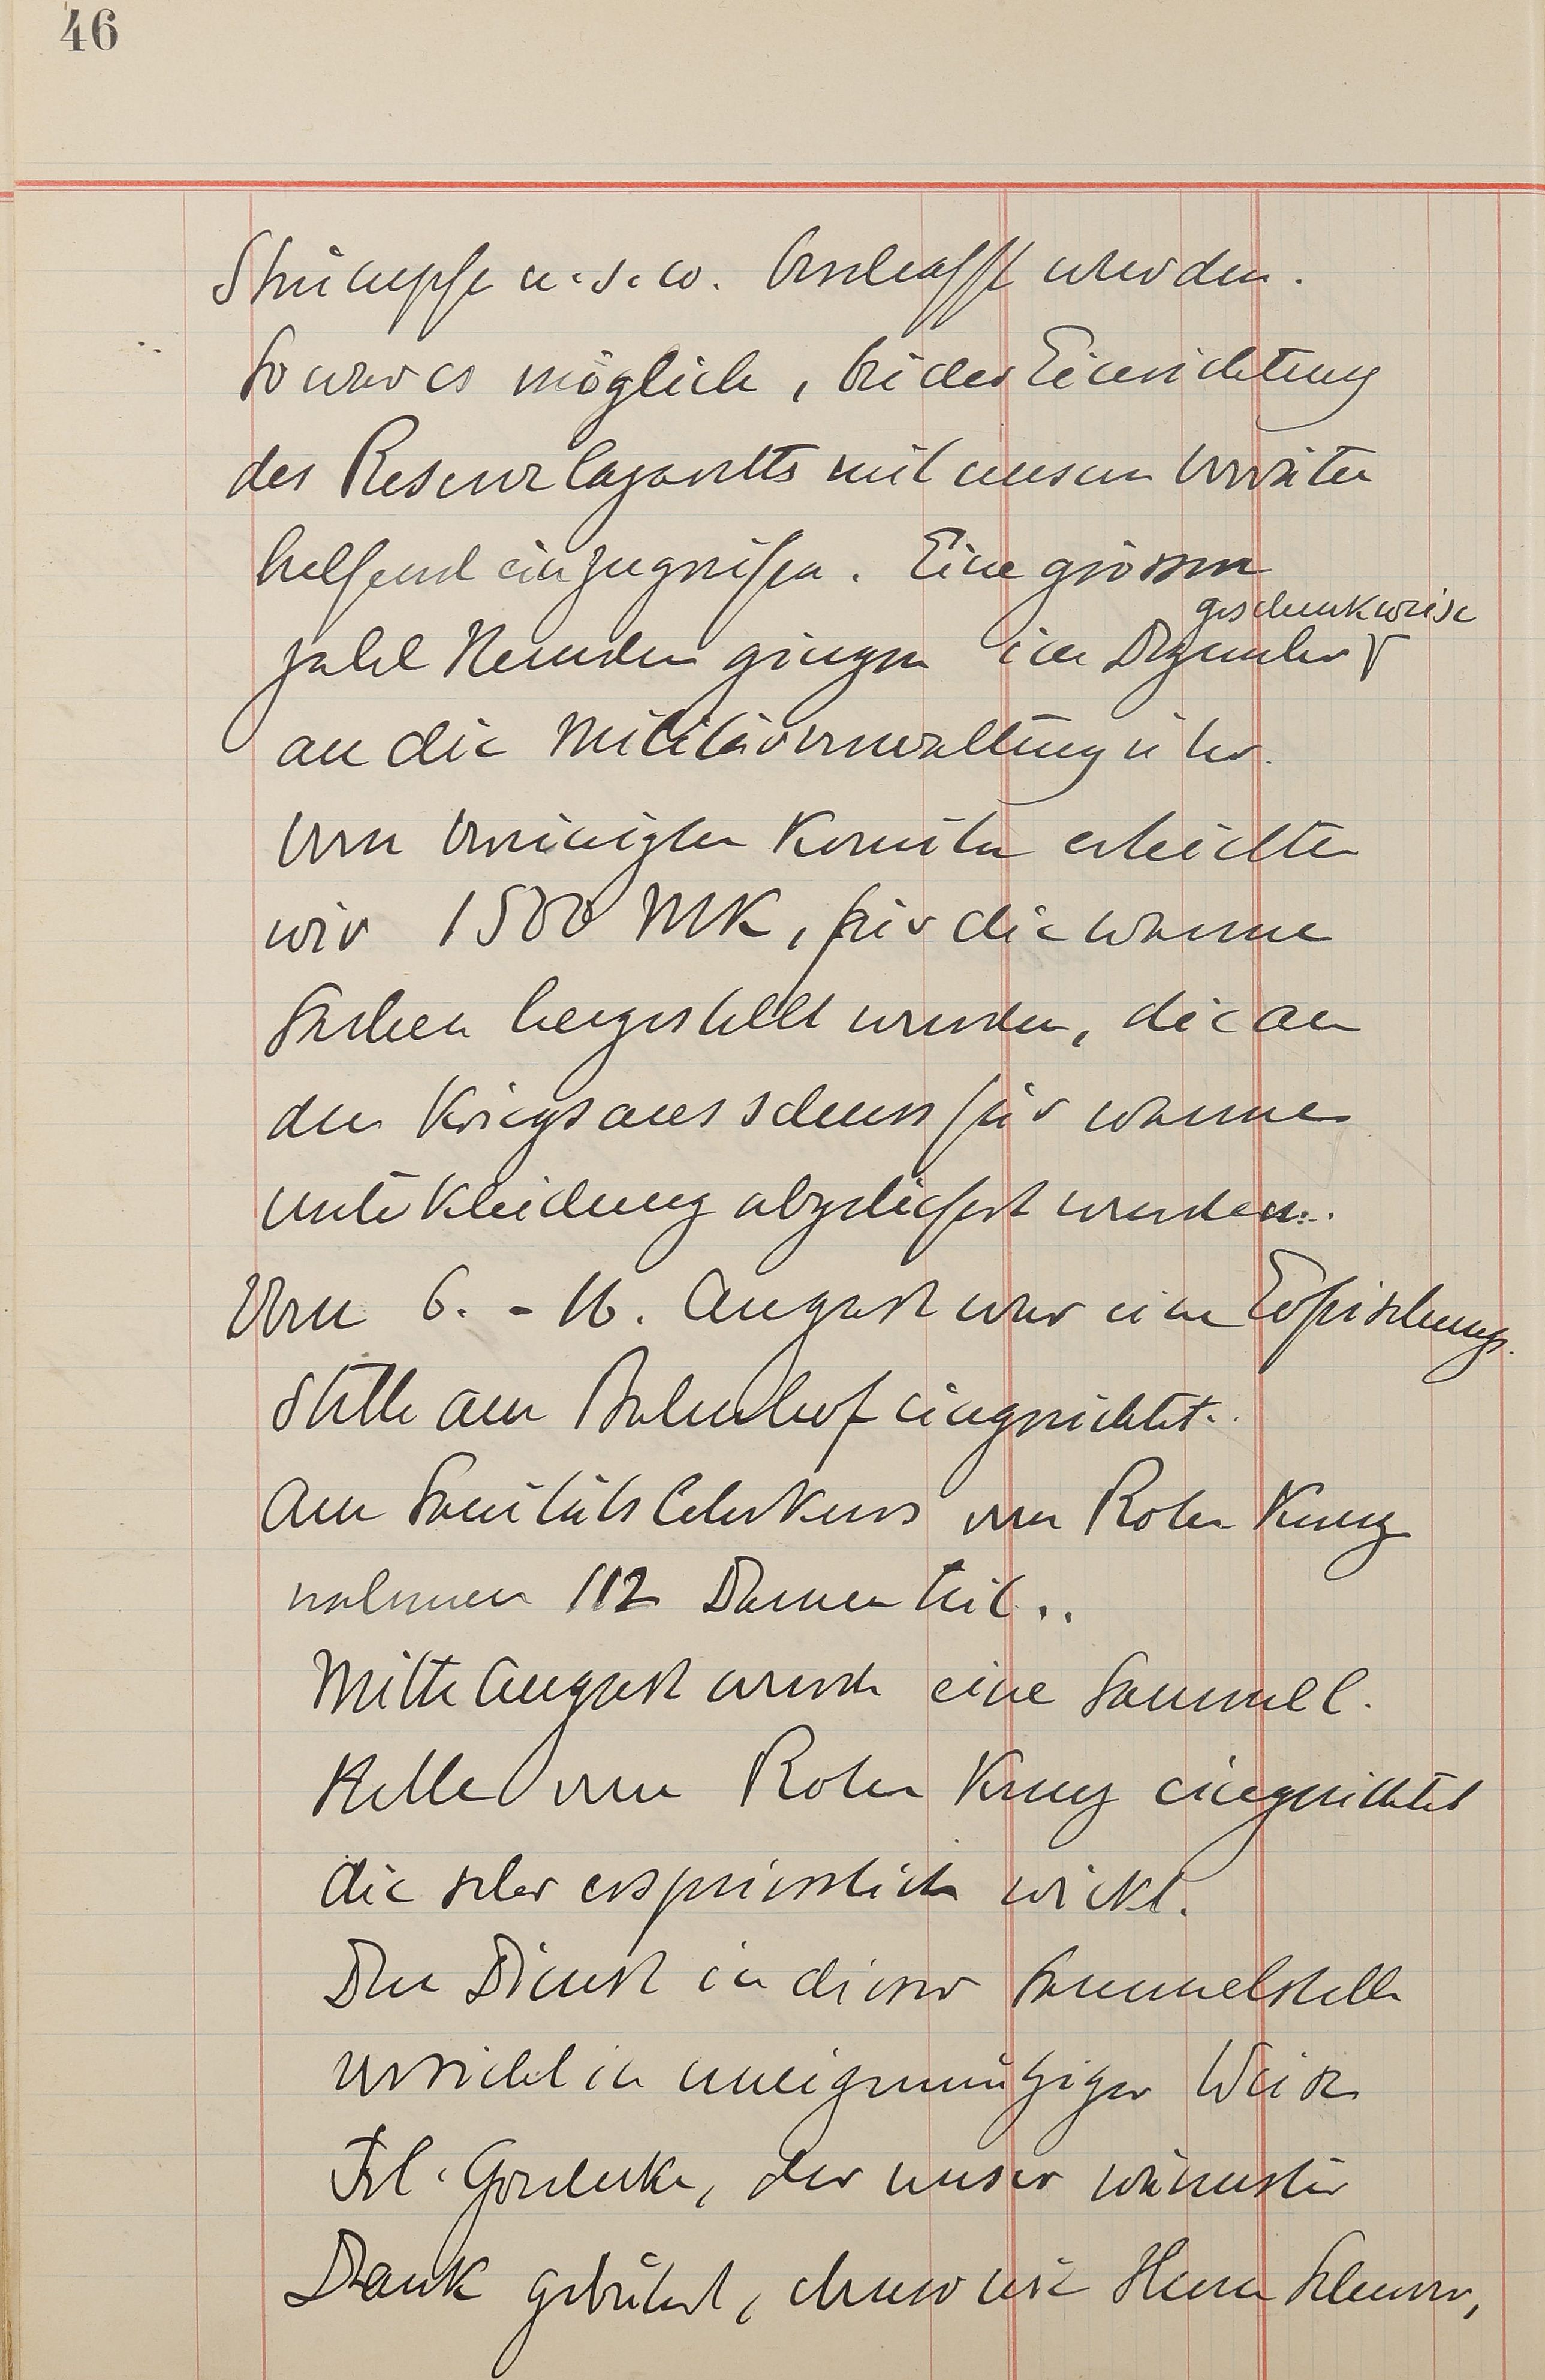 46
Strümpfe u.s.w. beschafft werden.
So war es möglich, bei der Einrichtung
des Reservelazaretts mit unseren Vorräten
helfend einzugreifen. Eine grössere
geschenkweise
Zahl Hemden gingen im Dezember
an die Militärverwaltung über.
Vom Vereinigten Komitee erhielten
wir 1500 MK, für die warme
Sachen hergestellt wurden, die an
den Kriegsausschuss für warme
Unterkleidung abgeliefert wurden.
Vom 6. - 16. August war eine Erfrischungs-
stelle am Bahnhof eingerichtet.
Am Sanitätslehrkurs vom Roten Kreuz
nahmen 112 Damen teil.
Mitte August wurde eine Sammel-
stelle vom Roten Kreuz eingerichtet
die sehr erspriesslich wirkt.
Den Dienst in dieser Sammelstelle
versieht in uneigennütziger Weise
Frl. , der unser wärmster
Dank gebührt, ebenso wie Herrn